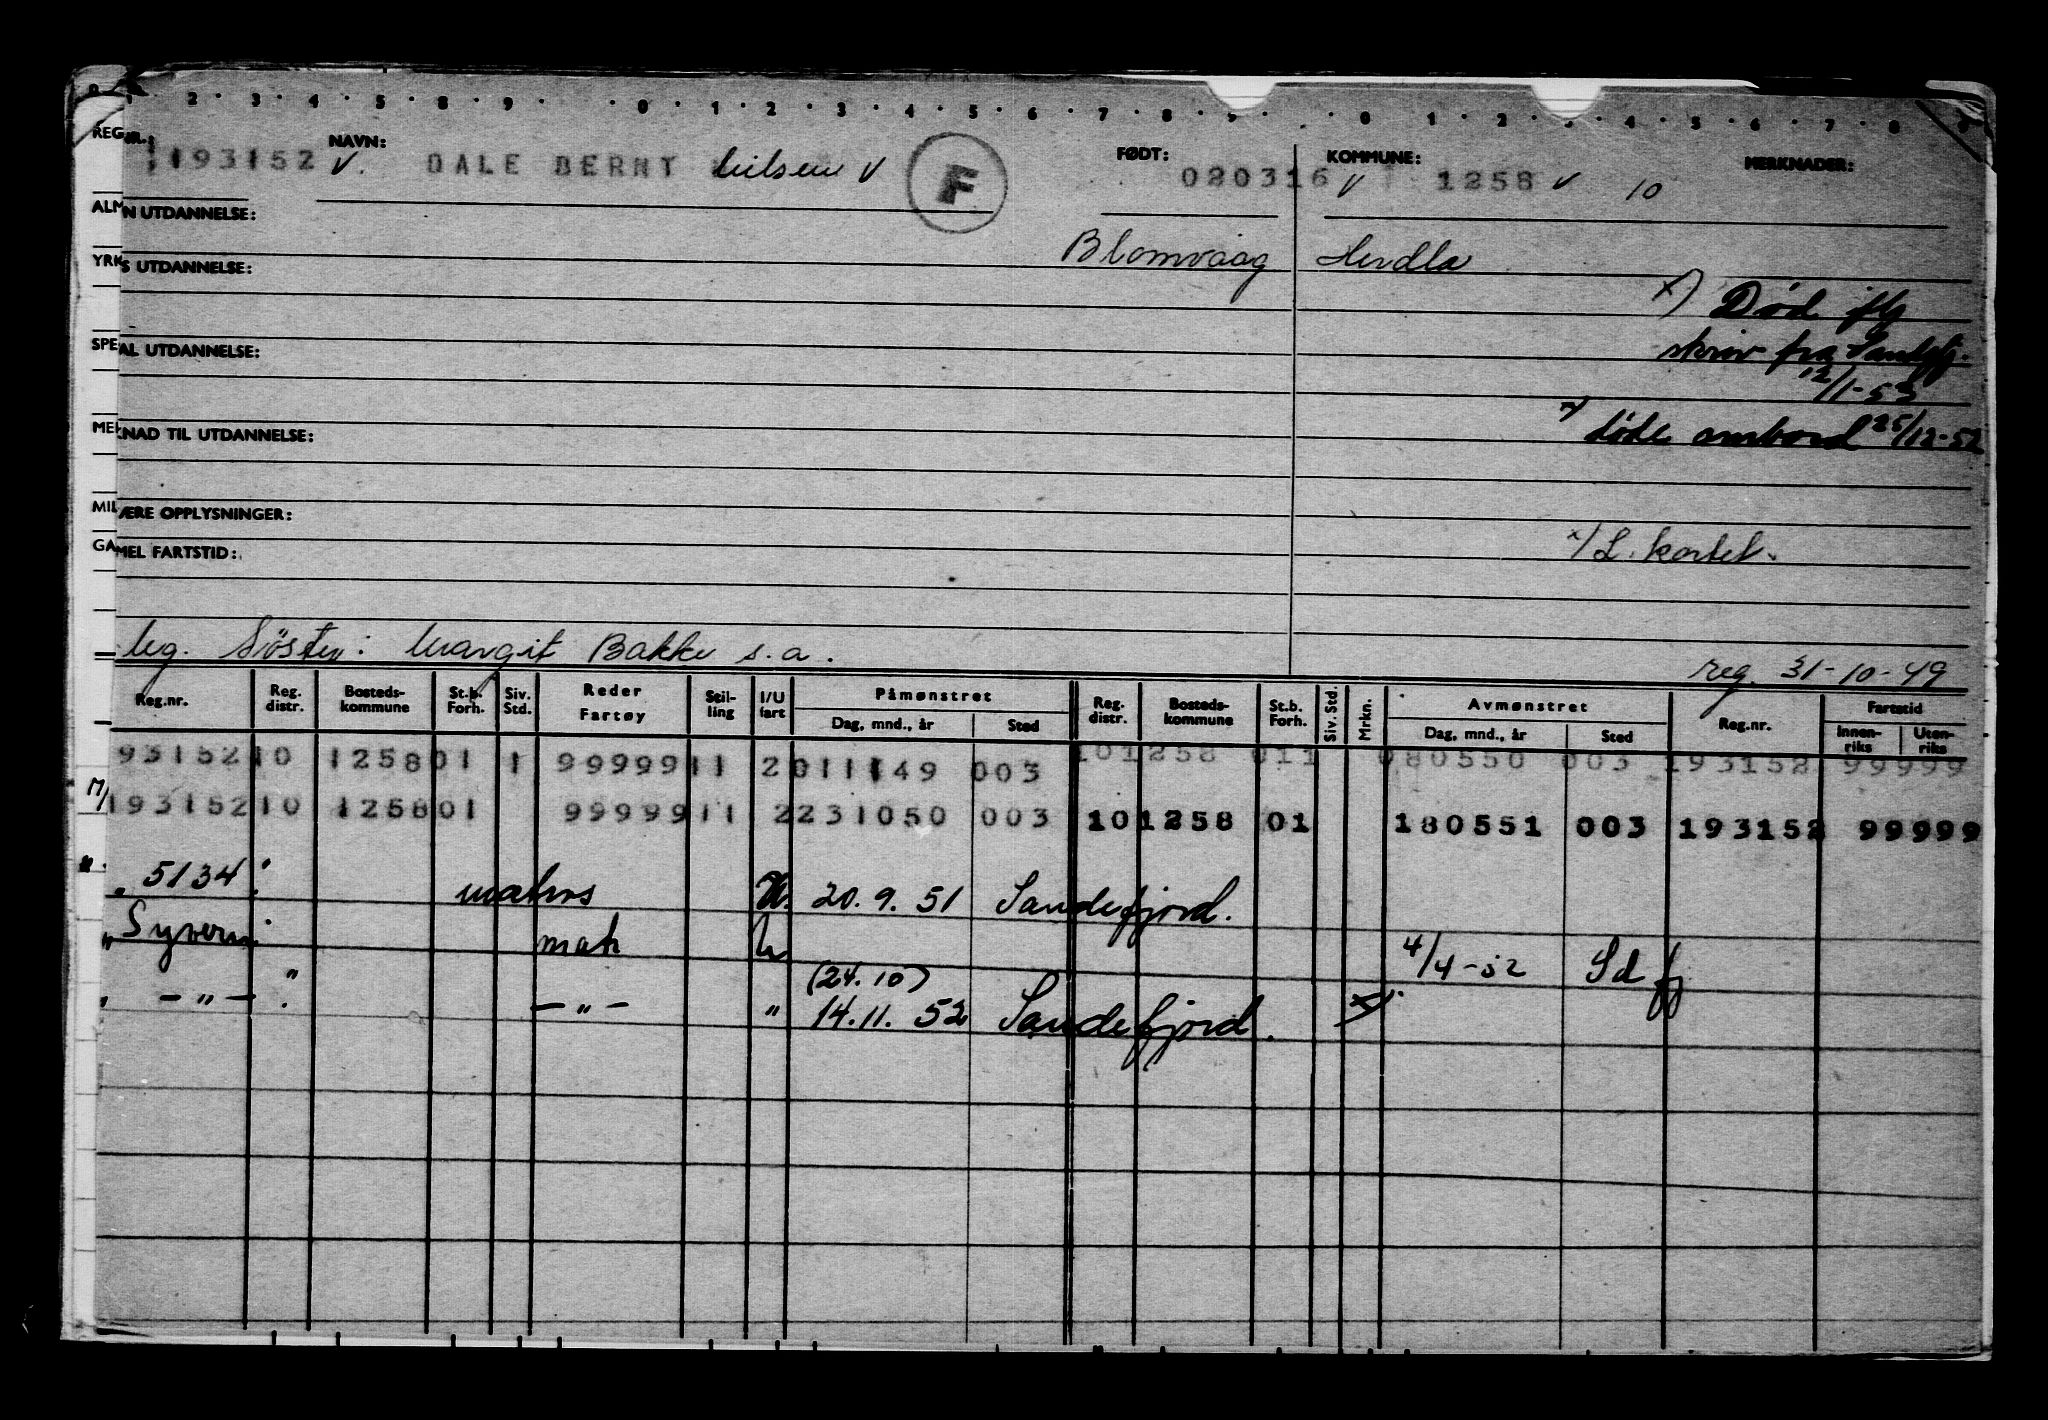 1 2 3 4 5 8 9 0 1 2 3 4 5 6 7 8 9 0 1 2 3 4 5 6 7 8 9
REG.NR.: NAVN: FØDT: KOMMUNE: MERKNADER:
193152 V. DALE BERNT Nilsen V F 020316 V 1258 V 10
ALMEN UTDANNELSE:
Blomvaag Herdla
YRKES UTDANNELSE:
x) Død iflg
SPESIAL UTDANNELSE:
skriv fra Sandefj.
12/1-53
MERKNAD TIL UTDANNELSE:
x) døde ombord 25/12-52
MILITÆRE OPPLYSNINGER:
GAMMEL FARTSTID:
x) L. kortet.
leg. Søster: Margit Bakke s.a.
reg. 31-10-49
Reg.nr. Reg. distr. Bosteds-kommune St.b. Forh. Siv. Std. Reder Fartøy Stil-ling I/U fart Påmønstret Dag, mnd., år Sted Reg. distr. Bosteds-kommune St.b. Forh. Siv. Std. Mrkn. Avmønstret Dag, mnd., år Sted Reg.nr. Fartstid Innen-riks Uten-riks
93152 10 1258 01 1 99999 11 2 011149 003 10 1258 01 1 080550 003 193152 99999
193152 10 1258 01 99999 11 2 231050 003 10 1258 01 180551 003 193152 99999
" 5134 matros U. 20.9.51 Sandefjord.
" Syvern matr U 4/4-52 Sdfj
(24.10)
" — " — — " — " 14.11.52 Sandefjord. x)